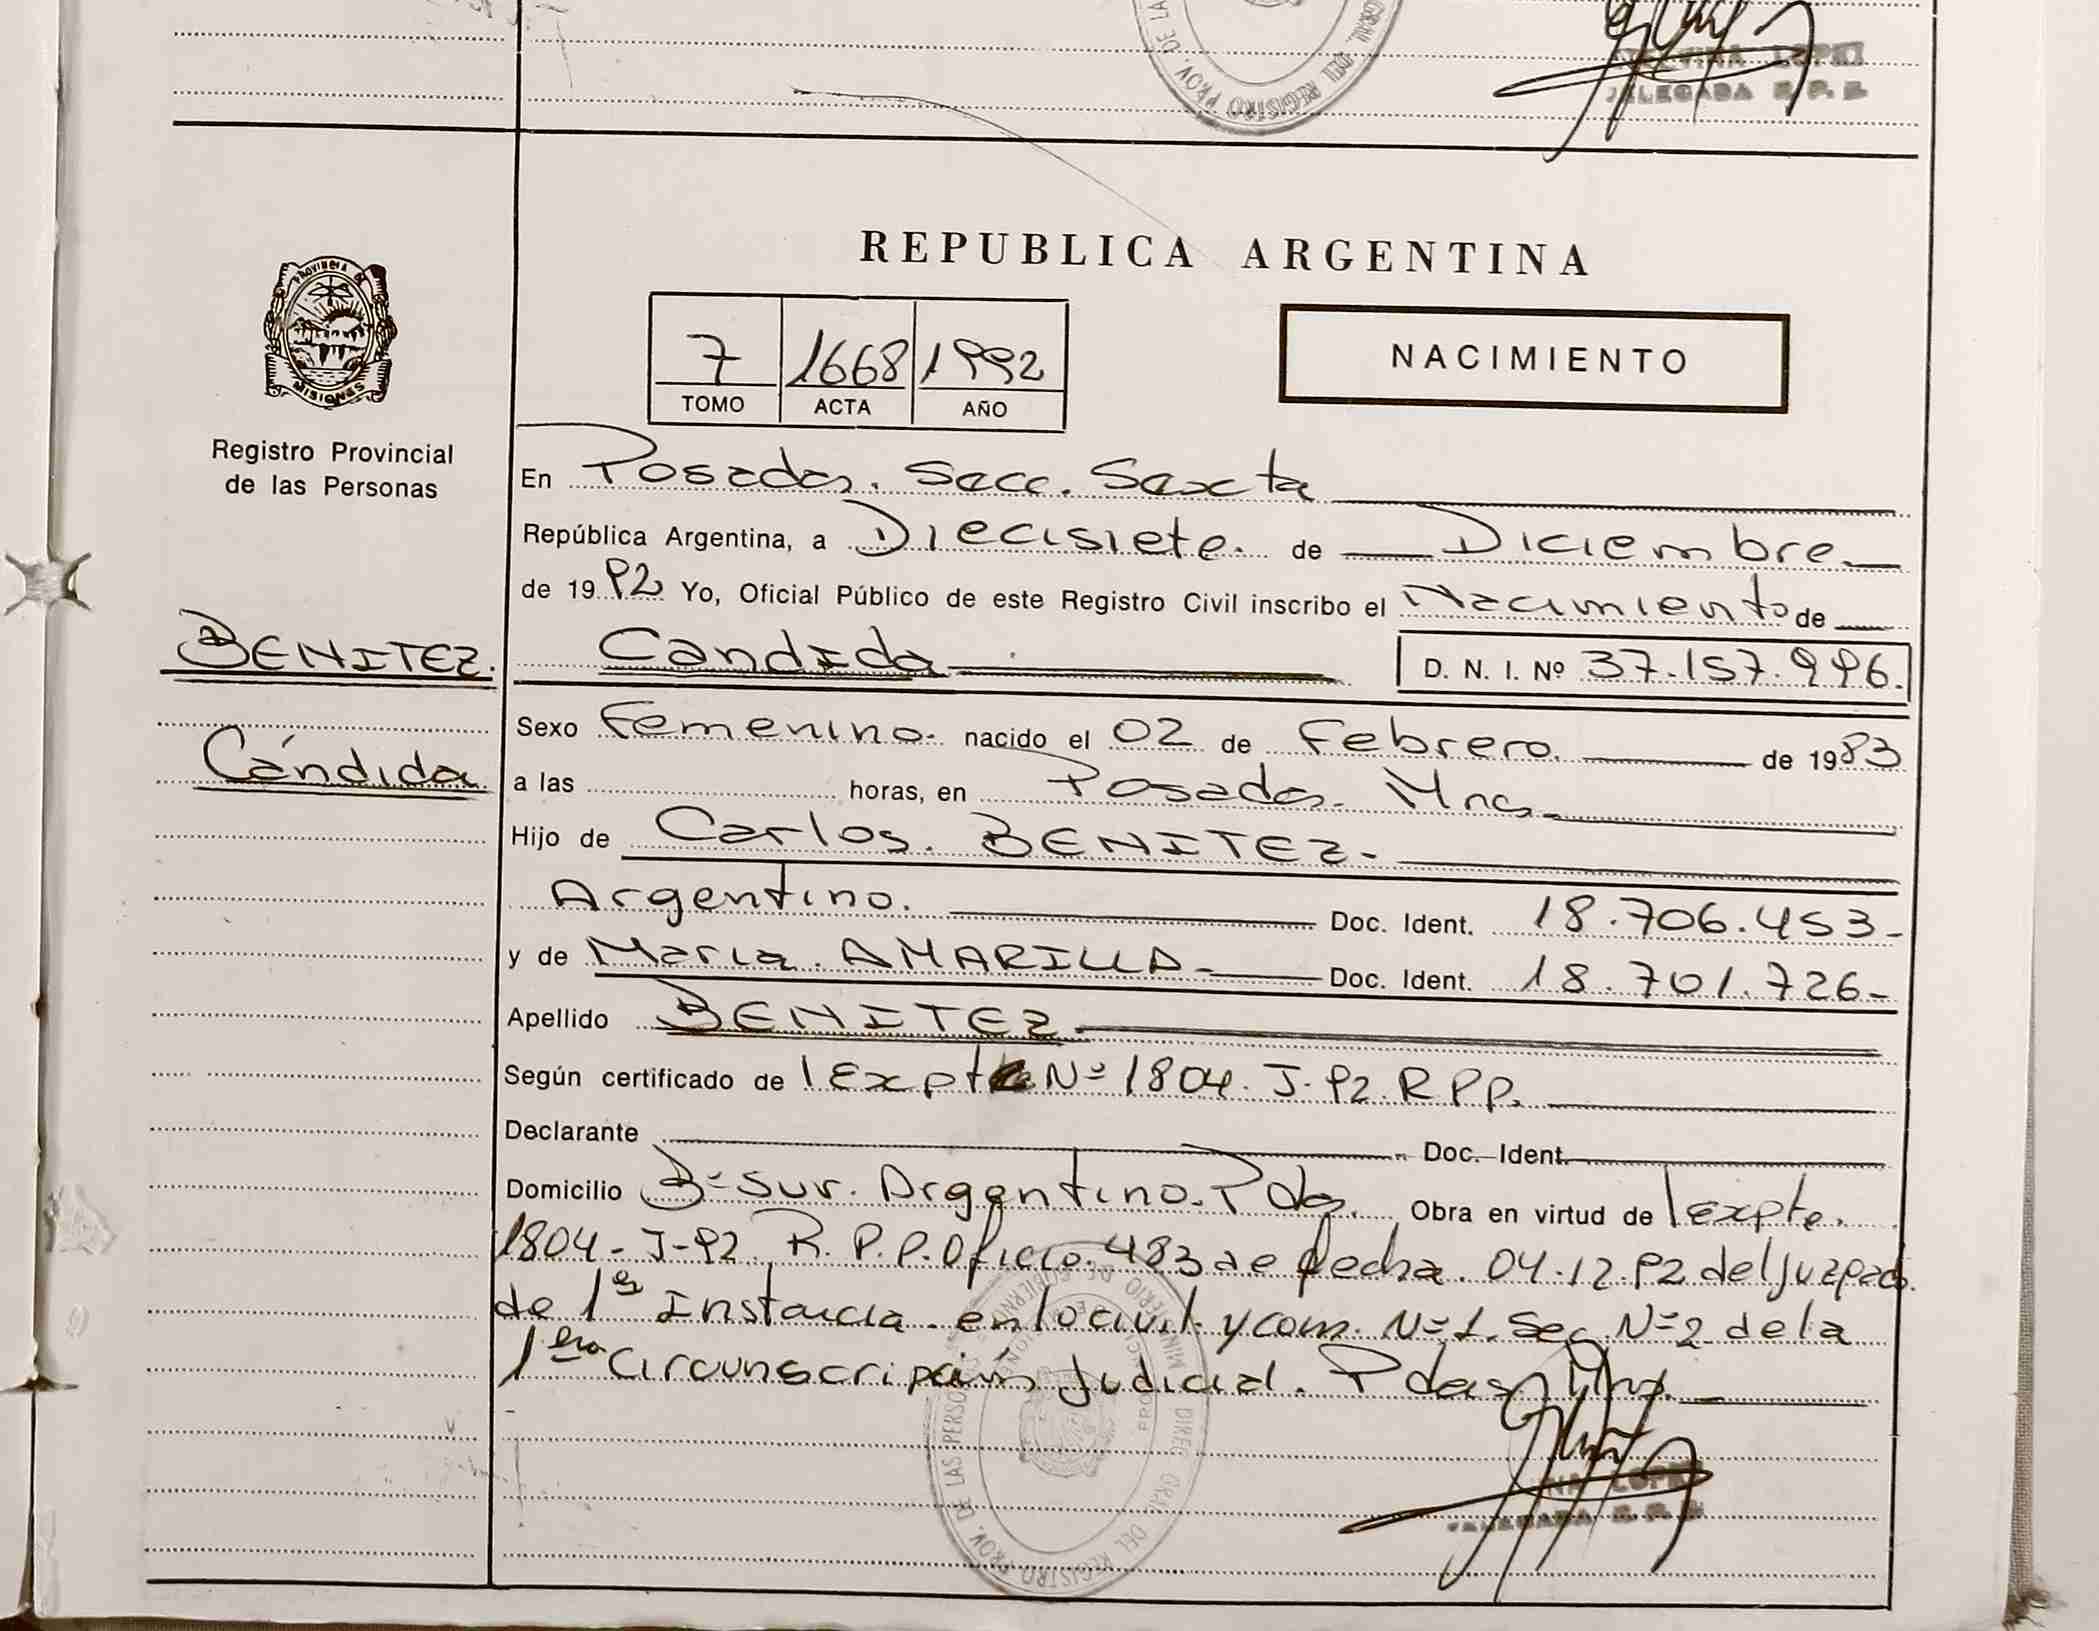 DEL REGISTRO PROV. DE LA
LOPEZ
REPUBLICA ARGENTINA
PROVINCIA DE
MISIONES
7 1668 1992
TOMO ACTA AÑO
NACIMIENTO
Registro Provincial
de las Personas
En Posadas. Secc. Sexta
República Argentina, a Diecisiete. de Diciembre
de 1992 Yo, Oficial Público de este Registro Civil inscribo el Nacimiento de
BENITEZ.
Candida
D. N. I. Nº 37.157.996.
Sexo Femenino. nacido el 02 de Febrero. de 1983
Cándida
a las horas, en Posadas. Mnes.
Hijo de Carlos. BENITEZ.
Argentino. Doc. Ident. 18.706.453-
y de Maria. AMARILLA Doc. Ident. 18.701.726-
Apellido BENITEZ
Según certificado de Expte Nº 1804. J-92. R P P.
Declarante Doc. Ident.
Domicilio Bº Sur. Argentino. Pdas. Obra en virtud de Expte.
1804- J-92. R. P. P. Oficio. 483 de fecha. 04.12.92 del Juzgado.
de 1ª Instancia. en lo civil. y com. Nº 1. Sec. Nº 2 de la
1era Circunscripción Judicial. Pdas Mnes.
PROV. DE LAS PERSONAS
MINISTERIO DE GOBIERNO
DIREC. GRAL. DEL REGISTRO
LOPEZ